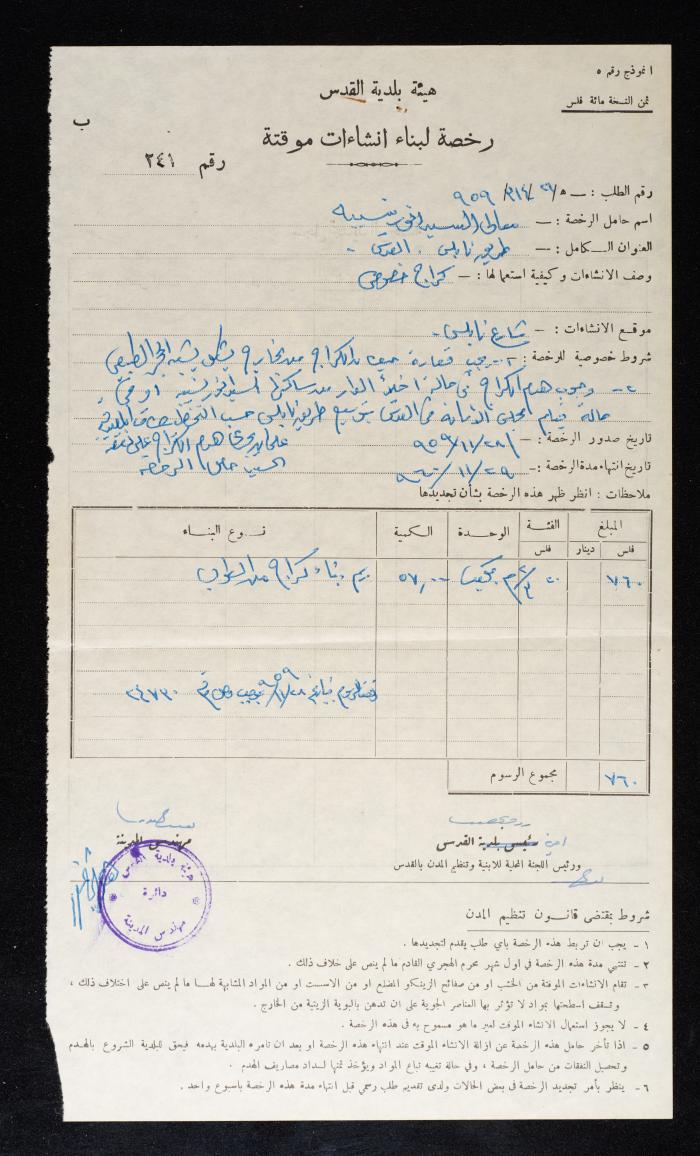 ١ نموذج رقم ٥
ثمن النسخة مائة فلس
هيئة بلدية القدس
ب
رخصة لبناء انشاءات موقتة
رقم ٢٤١
رقم الطلب : — ٩٥٩
اسم حامل الرخصة : — معالي السيد انور نسيبه
العنوان الكامل : — طريق نابلس . القدس -
وصف الانشاءات وكيفية استعمالها : — كراج خصوصي
موقع الانشاءات : — شارع نابلس -
شروط خصوصية للرخصة : — ١ - يجب من الخارج بشكل يشبه الحجر الطبيعي
٢ - وجوب هدم الكراج في حالة اخلاء الدار من ساكنها السيد انور نسيبه او في
حالة قيام بتوسيع طريق نابلس حسب
تاريخ صدور الرخصة : — ٩٥٩/١١/٢٨
على ان يجري هدم الكراج على نفقة
تاريخ انتهاء مدة الرخصة : — ٩٦٠/١١/٢٩
السيد حامل الرخصة
ملاحظات : انظر ظهر هذه الرخصة بشأن تجديدها
المبلغ الفئة الوحدة الكمية نوع البناء
فلس دينار فلس
٧٦٠ مكعب ٥٧,٠٠ رسم بناء كراج من الطوب
٢٤٧٣٠
٧٦٠ مجموع الرسوم
مهندس المدينة
امين
رئيس بلدية القدس
ورئيس اللجنة المحلية للابنية وتنظيم المدن بالقدس
هيئة بلدية القدس
دائرة
مهندس المدينة
شروط بمقتضى قانون تنظيم المدن
١ - يجب ان تربط هذه الرخصة باي طلب يقدم لتجديدها .
٢ - تنتهي مدة هذه الرخصة في اول شهر محرم الهجري القادم ما لم ينص على خلاف ذلك .
٣ - تقام الانشاءات الموقتة من الخشب او من صفائح الزينكو المضلع او من الاسبست او من المواد المشابهة لهـا ما لم ينص على اختلاف ذلك ،
وتسقف اسطحتها بمواد لا تؤثر بها العناصر الجوية على ان تدهن بالبوية الزيتية من الخارج .
٤ - لا يجوز استعمال الانشاء الموقت لغير ما هو مسموح به في هذه الرخصة .
٥ - اذا تأخر حامل هذه الرخصة عن ازالة الانشاء الموقت عند انتهاء هذه الرخصة او بعد ان تامره البلدية بهدمه فيحق للبلدية الشروع بالهدم
وتحصيل النفقات من حامل الرخصة ، وفي حالة تغيبه تباع المواد ويؤخذ ثمنها لسداد مصاريف الهدم .
٦ - ينظر بأمر تجديد الرخصة في بعض الحالات ولدى تقديم طلب رسمي قبل انتهاء مدة هذه الرخصة باسبوع واحد .